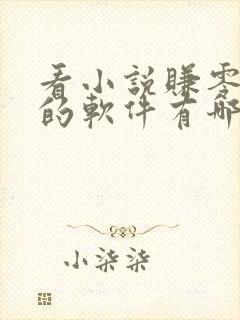 看小説賺零
的軟件有哪
小柒柒